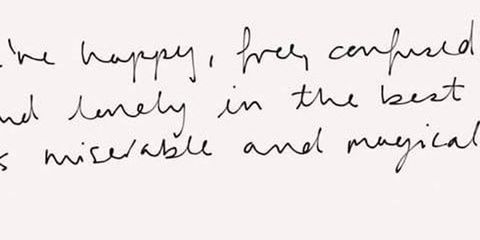 're happy, free, confused
nd lonely in the best
s miserable and magical